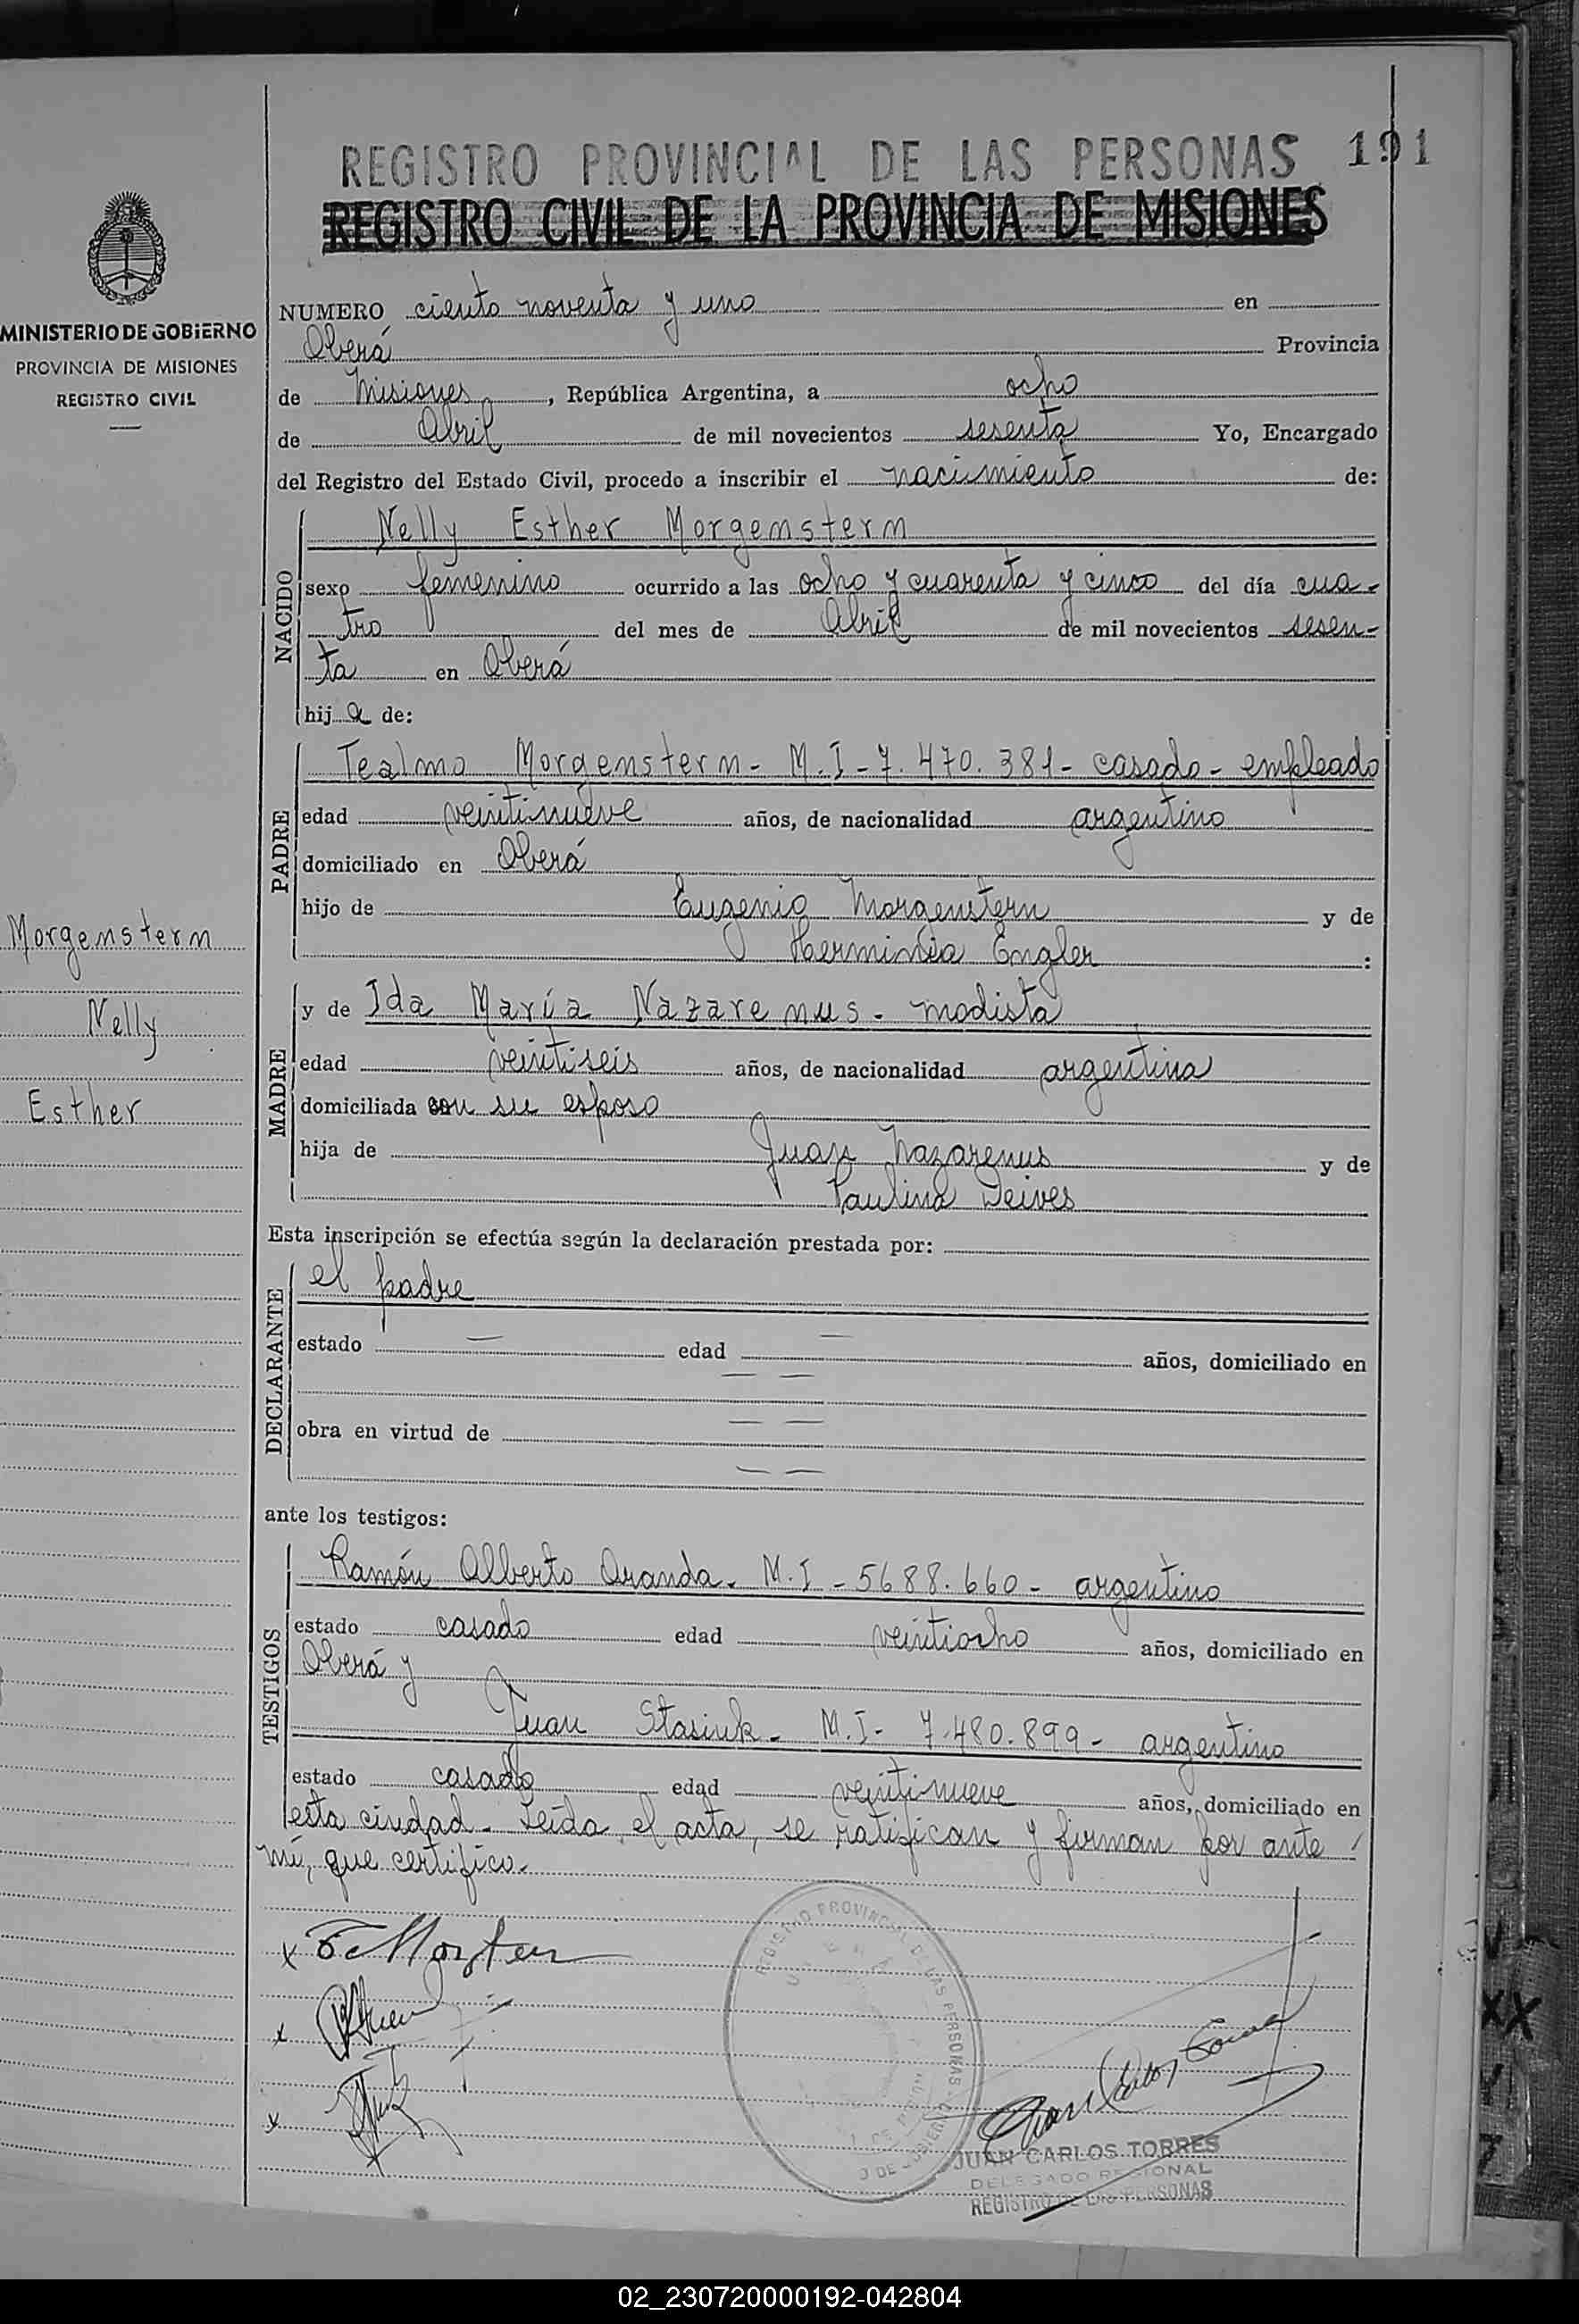 REGISTRO PROVINCIAL DE LAS PERSONAS 191
REGISTRO CIVIL DE LA PROVINCIA DE MISIONES
MINISTERIO DE GOBIERNO
PROVINCIA DE MISIONES
REGISTRO CIVIL
NUMERO ciento noventa y uno en
Oberá Provincia
de Misiones, República Argentina, a ocho
de Abril de mil novecientos sesenta Yo, Encargado
del Registro del Estado Civil, procedo a inscribir el nacimiento de:
NACIDO
Nelly Esther Morgenstern
sexo femenino ocurrido a las ocho y cuarenta y cinco del día cua-
tro del mes de Abril de mil novecientos sesen-
ta en Oberá
hija de:
PADRE
Tealmo Morgenstern - M.I - 7.470.381 - casado - empleado
edad veintinueve años, de nacionalidad argentino
domiciliado en Oberá
hijo de Eugenio Morgenstern y de
Herminia Engler :
Morgenstern
Nelly
Esther
MADRE
y de Ida María Nazarenus - modista
edad veintiseis años, de nacionalidad argentina
domiciliada con su esposo
hija de Juan Nazarenus y de
Paulina Deives
Esta inscripción se efectúa según la declaración prestada por:
DECLARANTE
el padre
estado — edad — años, domiciliado en
— —
obra en virtud de — —
— —
ante los testigos:
TESTIGOS
Ramón Alberto Aranda - M.I - 5688.660 - argentino
estado casado edad veintiocho años, domiciliado en
Oberá y
Juan Stasiuk - M.I - 7.480.899 - argentino
estado casado edad veintinueve años, domiciliado en
esta ciudad - Leída el acta, se ratifican y firman por ante
mí, que certifico.
REGISTRO PROVINCIAL DE LAS PERSONAS
JUAN CARLOS TORRES
DELEGADO REGIONAL
REGISTRO DE LAS PERSONAS
02_230720000192-042804